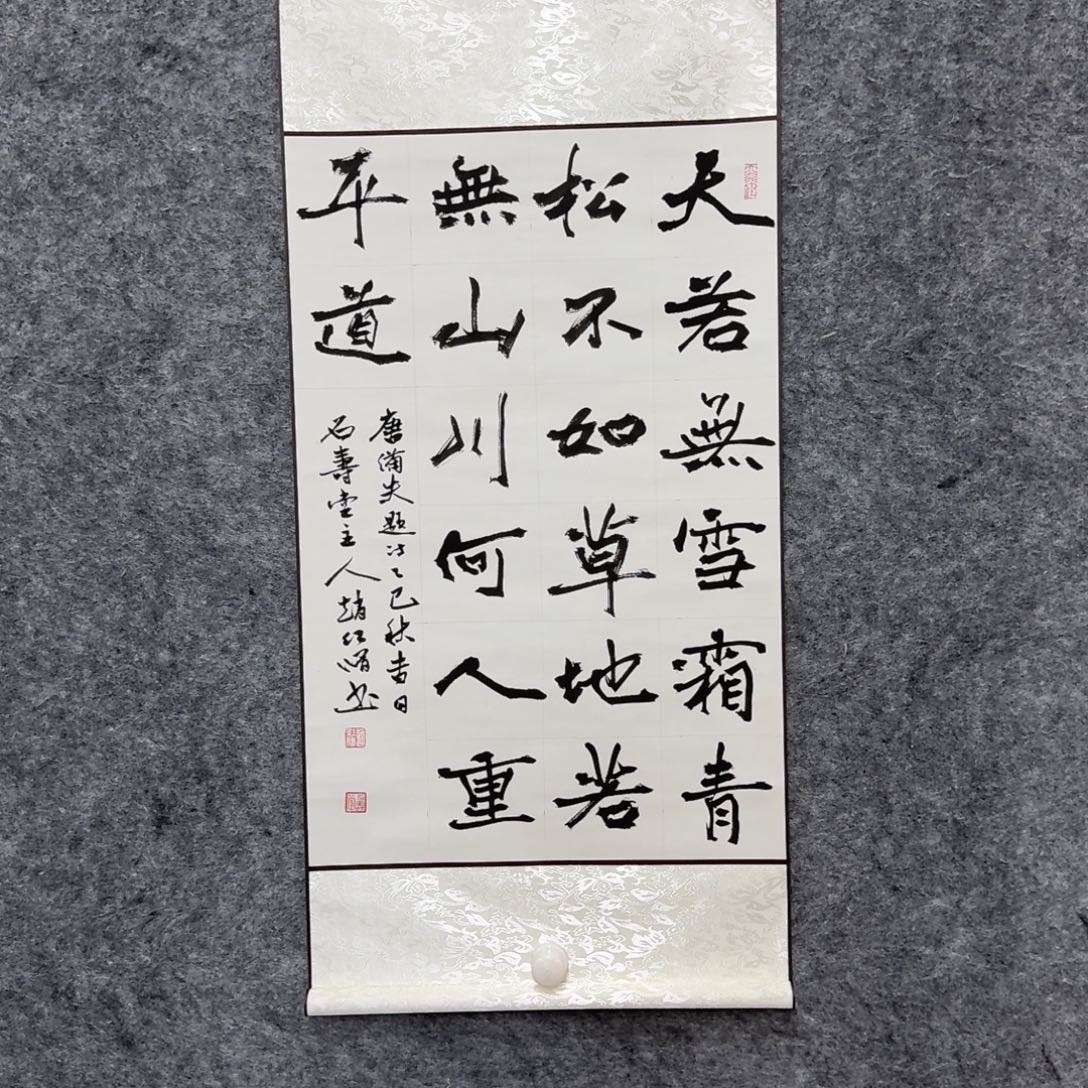 天若無雪霜青
松不如草地若
無山川何人重
平道
唐備失題詩乙巳秋吉日
石壽堂主人趙仁
書